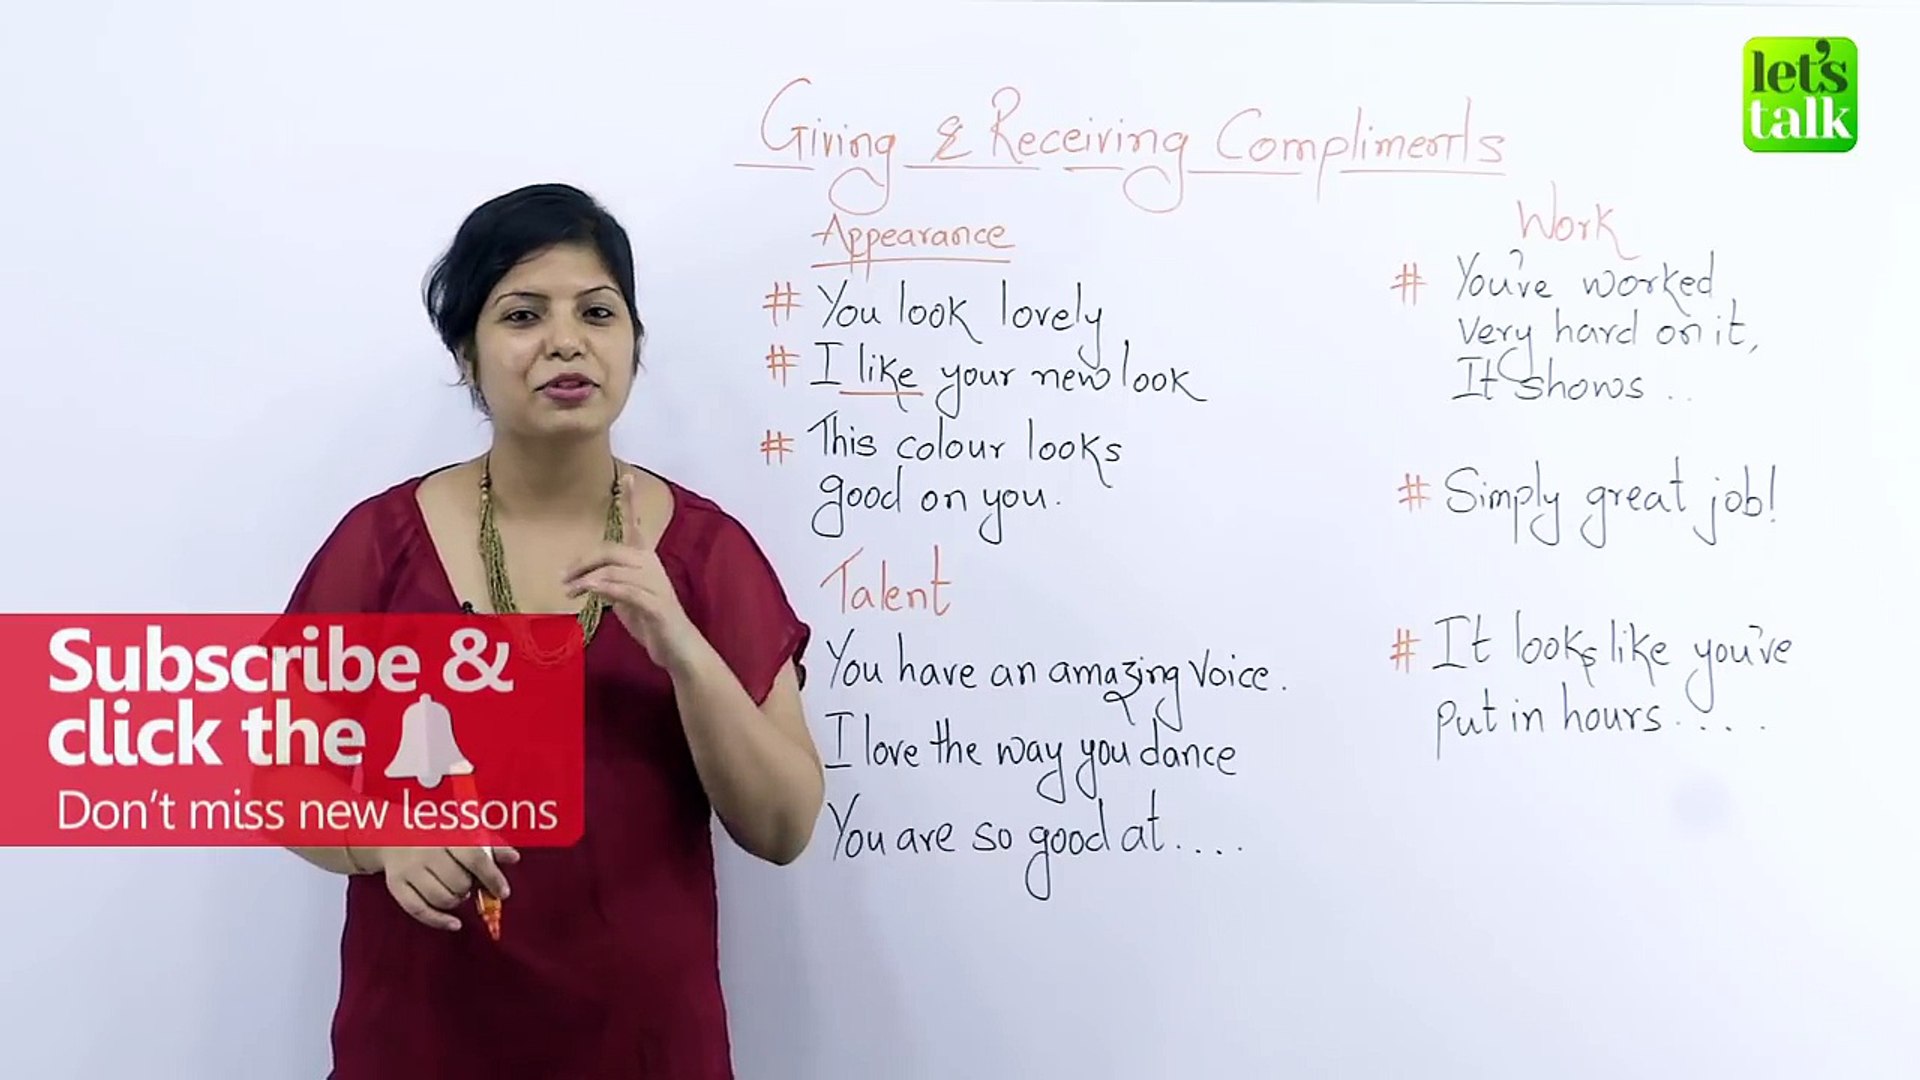 let's
talk
Giving & Receiving Compliments
Appearance
# You look lovely
# I like your new look
# This colour looks
good on you.
Talent
You have an amazing voice.
I love the way you dance
You are so good at....
Work
# You've worked
very hard on it,
It shows ..
# Simply great job!
# It looks like you've
put in hours.....
Subscribe &
click the
Don't miss new lessons